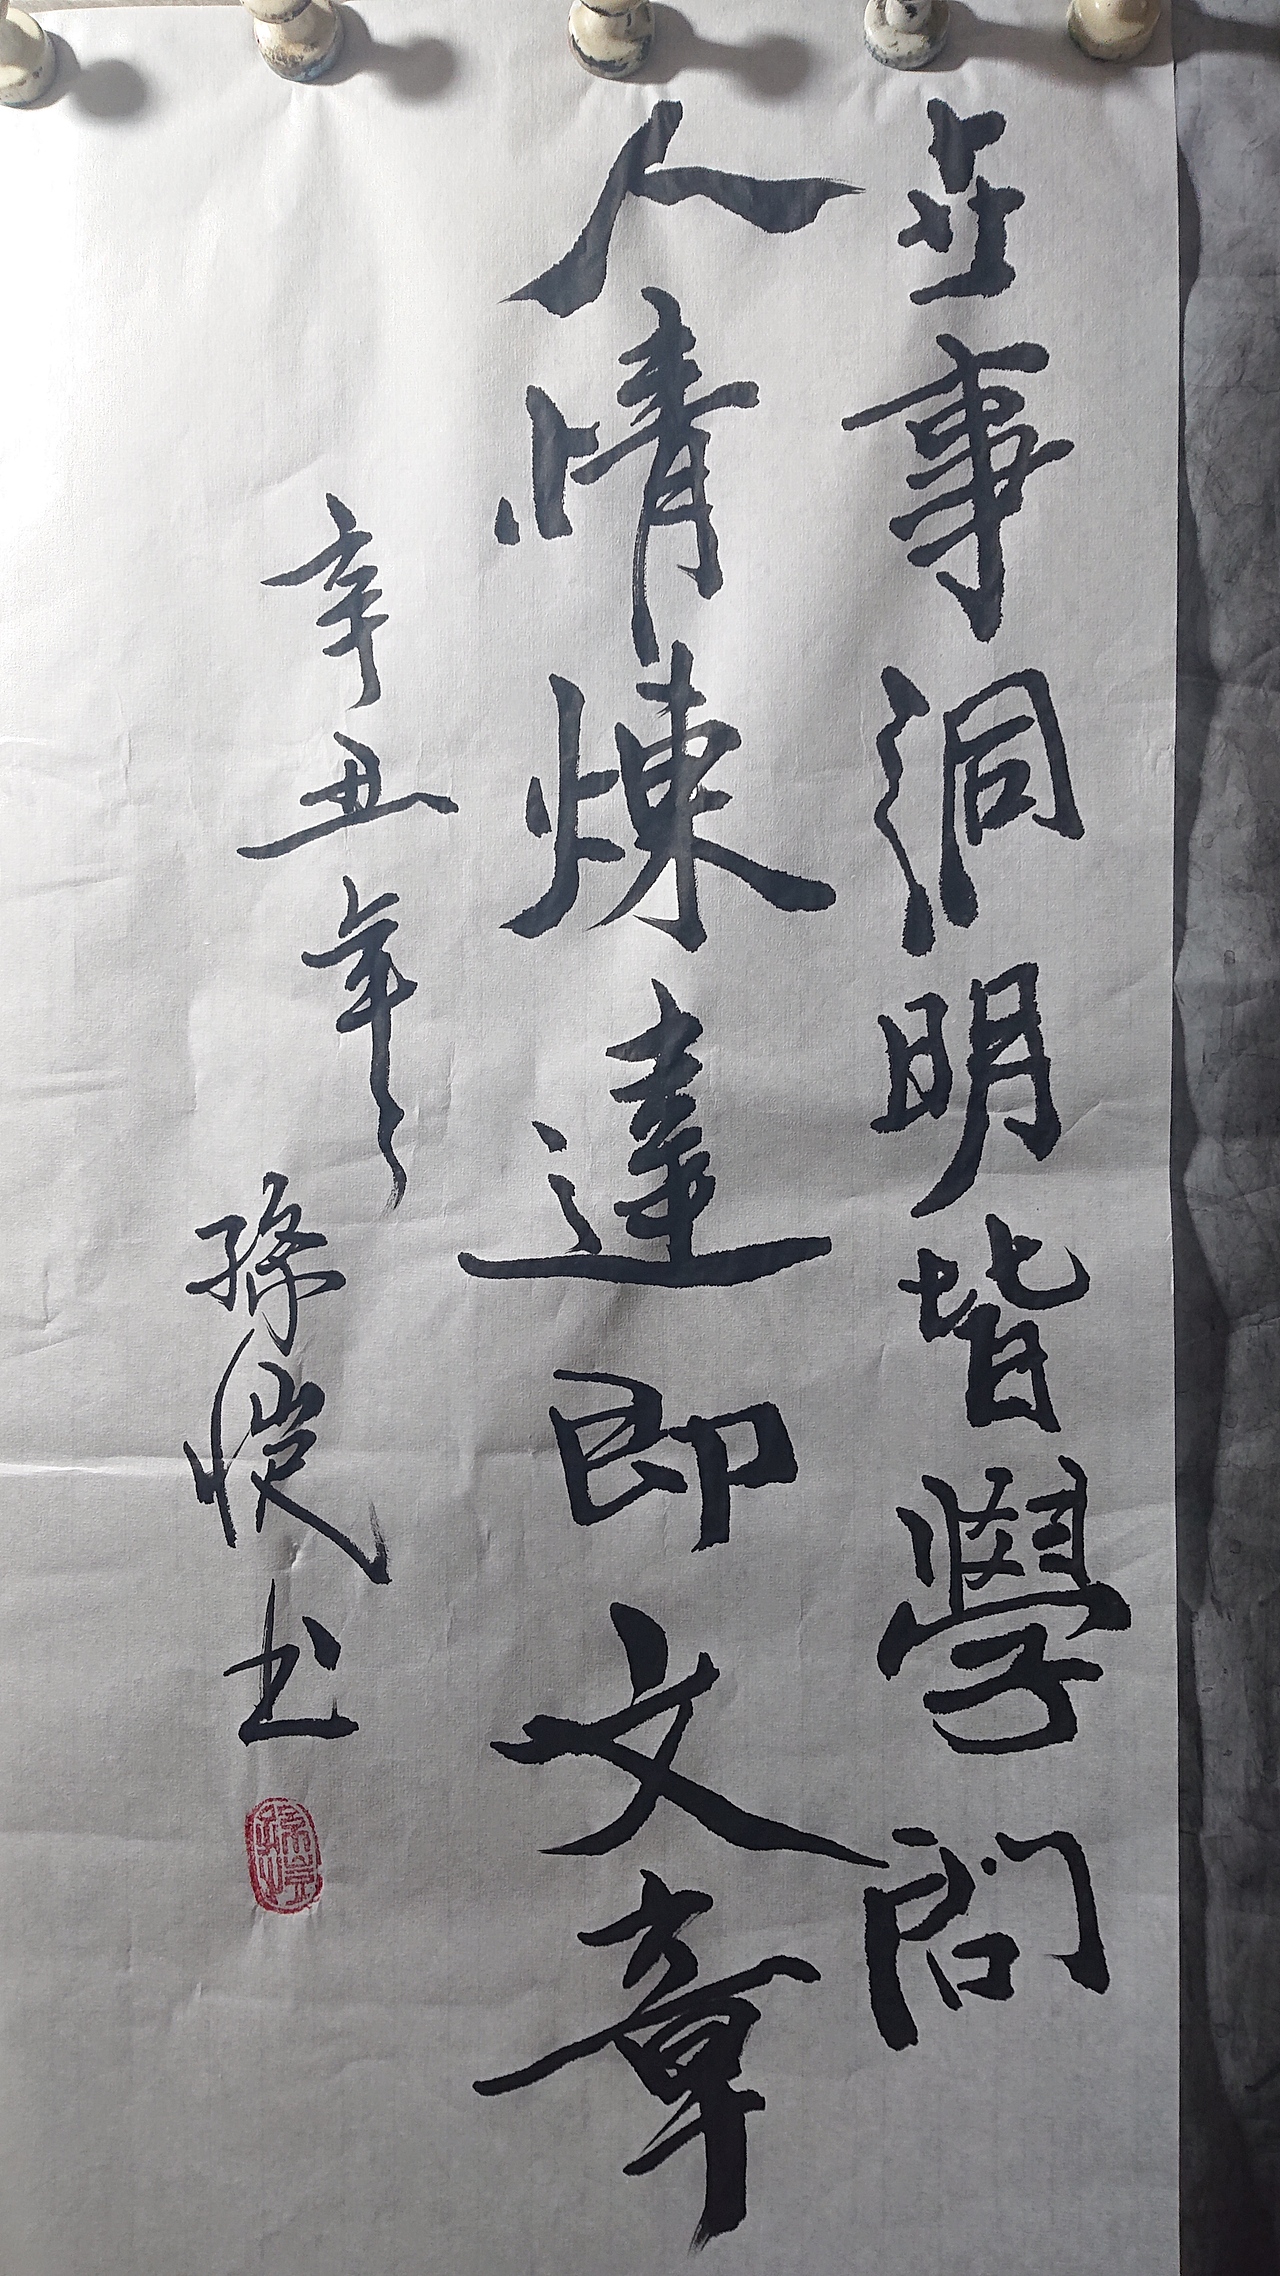 世事洞明皆學問
人情煉達即文章
辛丑年
孫愷书